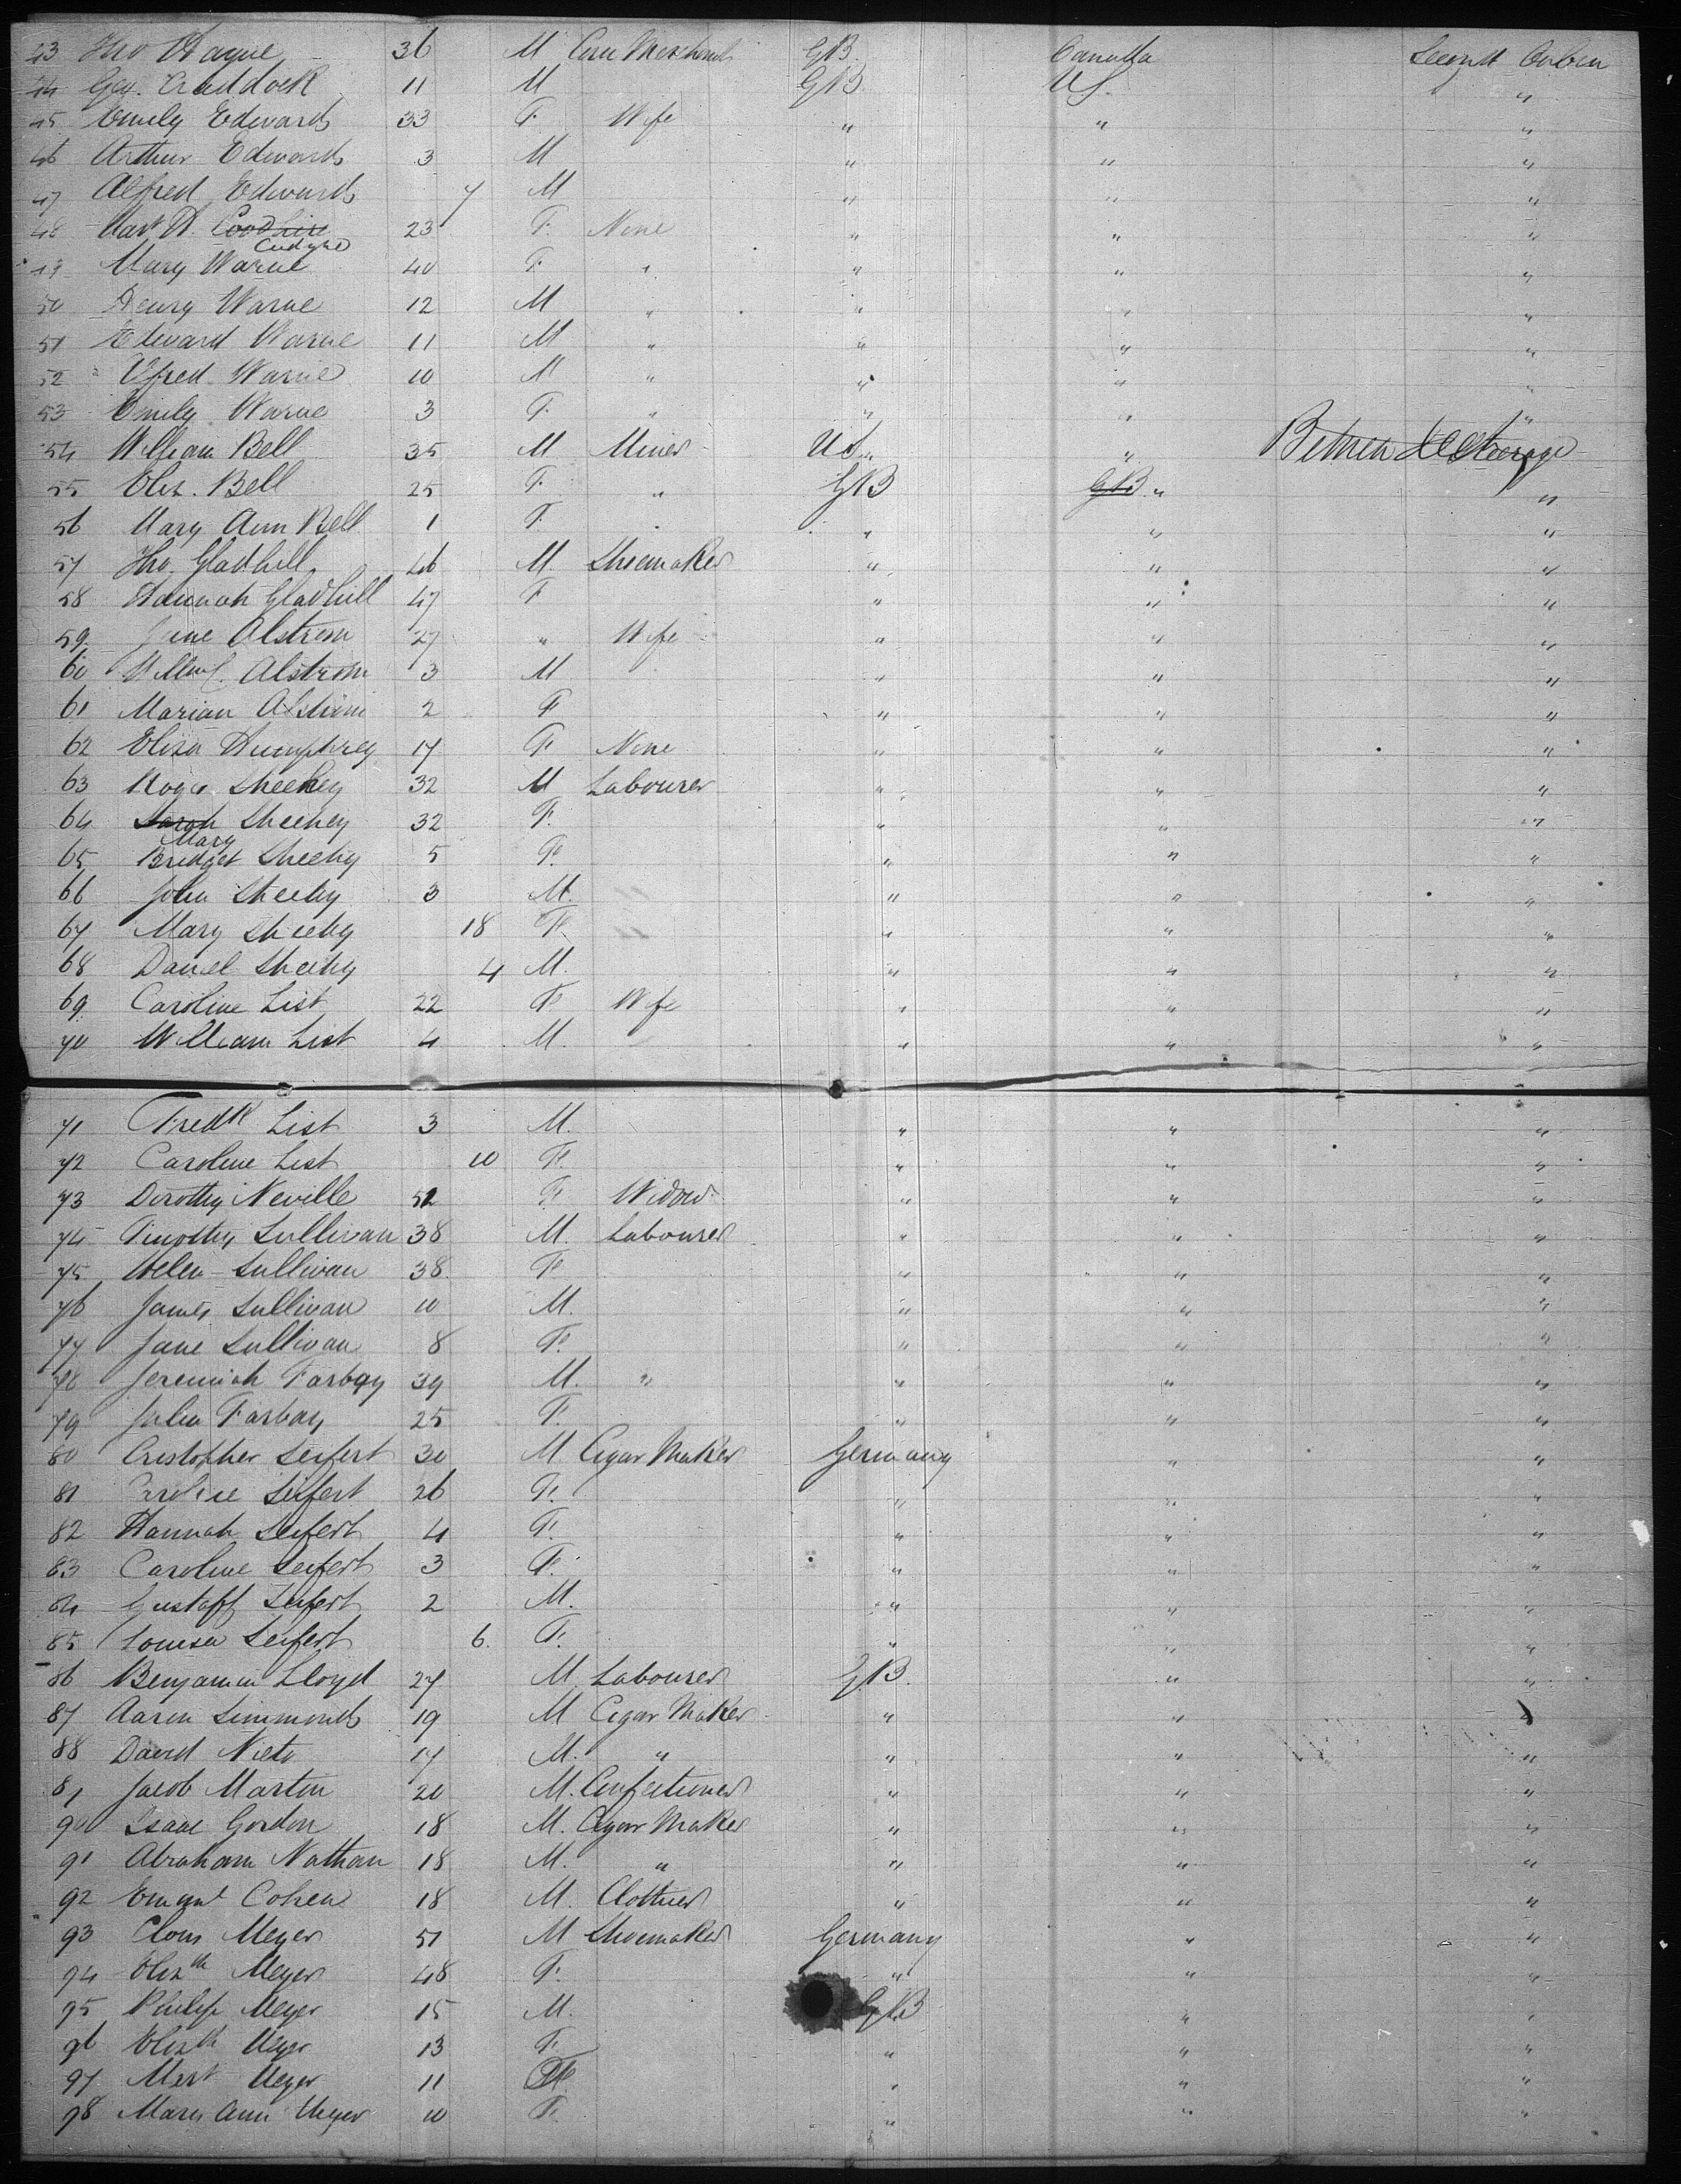 43 Tho Hayne 36 M Corn Merchant GB. Canada Second Cabin
44 Geo. Craddock 11 M GB US. "
45 Emily Edwards 33 F. Wife " " "
46 Arthur Edwards 3 M " " "
47 Alfred Edwards 7 M " " "
48 23 F. None " " "
49 Mary Warne 40 F. " " " "
50 Henry Warne 12 M " " " "
51 Edward Warne 11 M " " " "
52 Alfred Warne 10 M " " " "
53 Emily Warne 3 F. " " " "
54 William Bell 35 M Miner US. " Between Steerage
55 Eliz. Bell 25 F. " GB GB " "
56 Mary Ann Bell 1 F. " " "
57 Tho. Gladhill 46 M. Shoemaker " " "
58 Hannah Gladhill 47 F " " "
59. Jane Alstrom 27 " Wife " " "
60 Alstrom 3 M " " "
61 Marian Alstrom 2 F " " "
62 Eliza Humphrey 17 F. None " " "
63 Roger Sheehey 32 M Labourer " " "
64 Sarah Sheehey 32 F. " " "
Mary
65 Bridget Sheehy 5 F. " " "
66 John Sheehy 3 M. " " "
67 Mary Sheehy 18 F. " " "
68 Daniel Sheehy 4 M. " " "
69. Caroline List 22 F. Wife " " "
70 William List 4 M. " " "
71 Fredk List 3 M. " " "
72 Caroline List 10 F. " " "
73 Dorothy Neville 52 F. Widow " " "
74 Timothy Sullivan 38 M. Labourer " " "
75 Helen Sullivan 38 F. " " "
76 James Sullivan 10 M. " " "
77 Jane Sullivan 8 F. " " "
78 Jeremiah Farbay 39 M. " " " "
79 Julia Farbay 25 F. " " "
80 Cristopher Seifert 30 M Cigar Maker Germany " "
81 Caroline Seifert 26 F. " " "
82 Hannah Seifert 4 F. " " "
83 Caroline Seifert 3 F. " " "
84 Gustaff Seifert 2 M. " " "
85 Louisa Seifert 6. F. " " "
86 Benjamin Lloyd 27 M. Labourer GB. " "
87 Aaron Simmonds 19 M Cigar Maker " " "
88 David Nieto 17 M. " " " "
89 Jacob Martin 20 M. Confectioner " " "
90 Isaac Gordon 18 M. Cigar Maker " " "
91 Abraham Nathan 18 M. " " " "
92 Emanl Cohen 18 M. Clothier " " "
93 Meyer 51 M Shoemaker Germany " "
94 Elizth Meyer 48 F. " " "
95 Philip Meyer 15 M. GB " "
96 Elizth Meyer 13 F. " " "
97. Meyer 11 " " "
98 Mary Ann Meyer 10 F. " " "